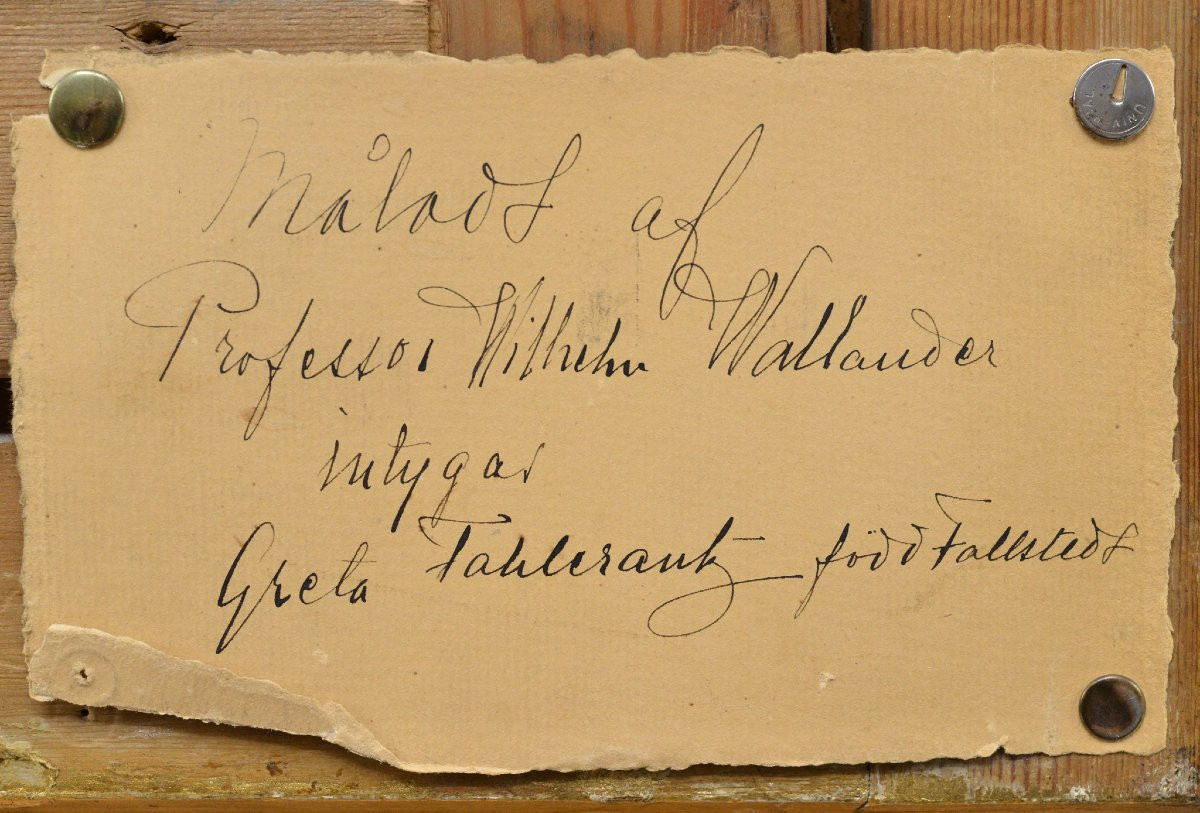 Måladt af
Professor Wilhelm Wallander
intygar
Greta Fahlcrantz född Fallstedt